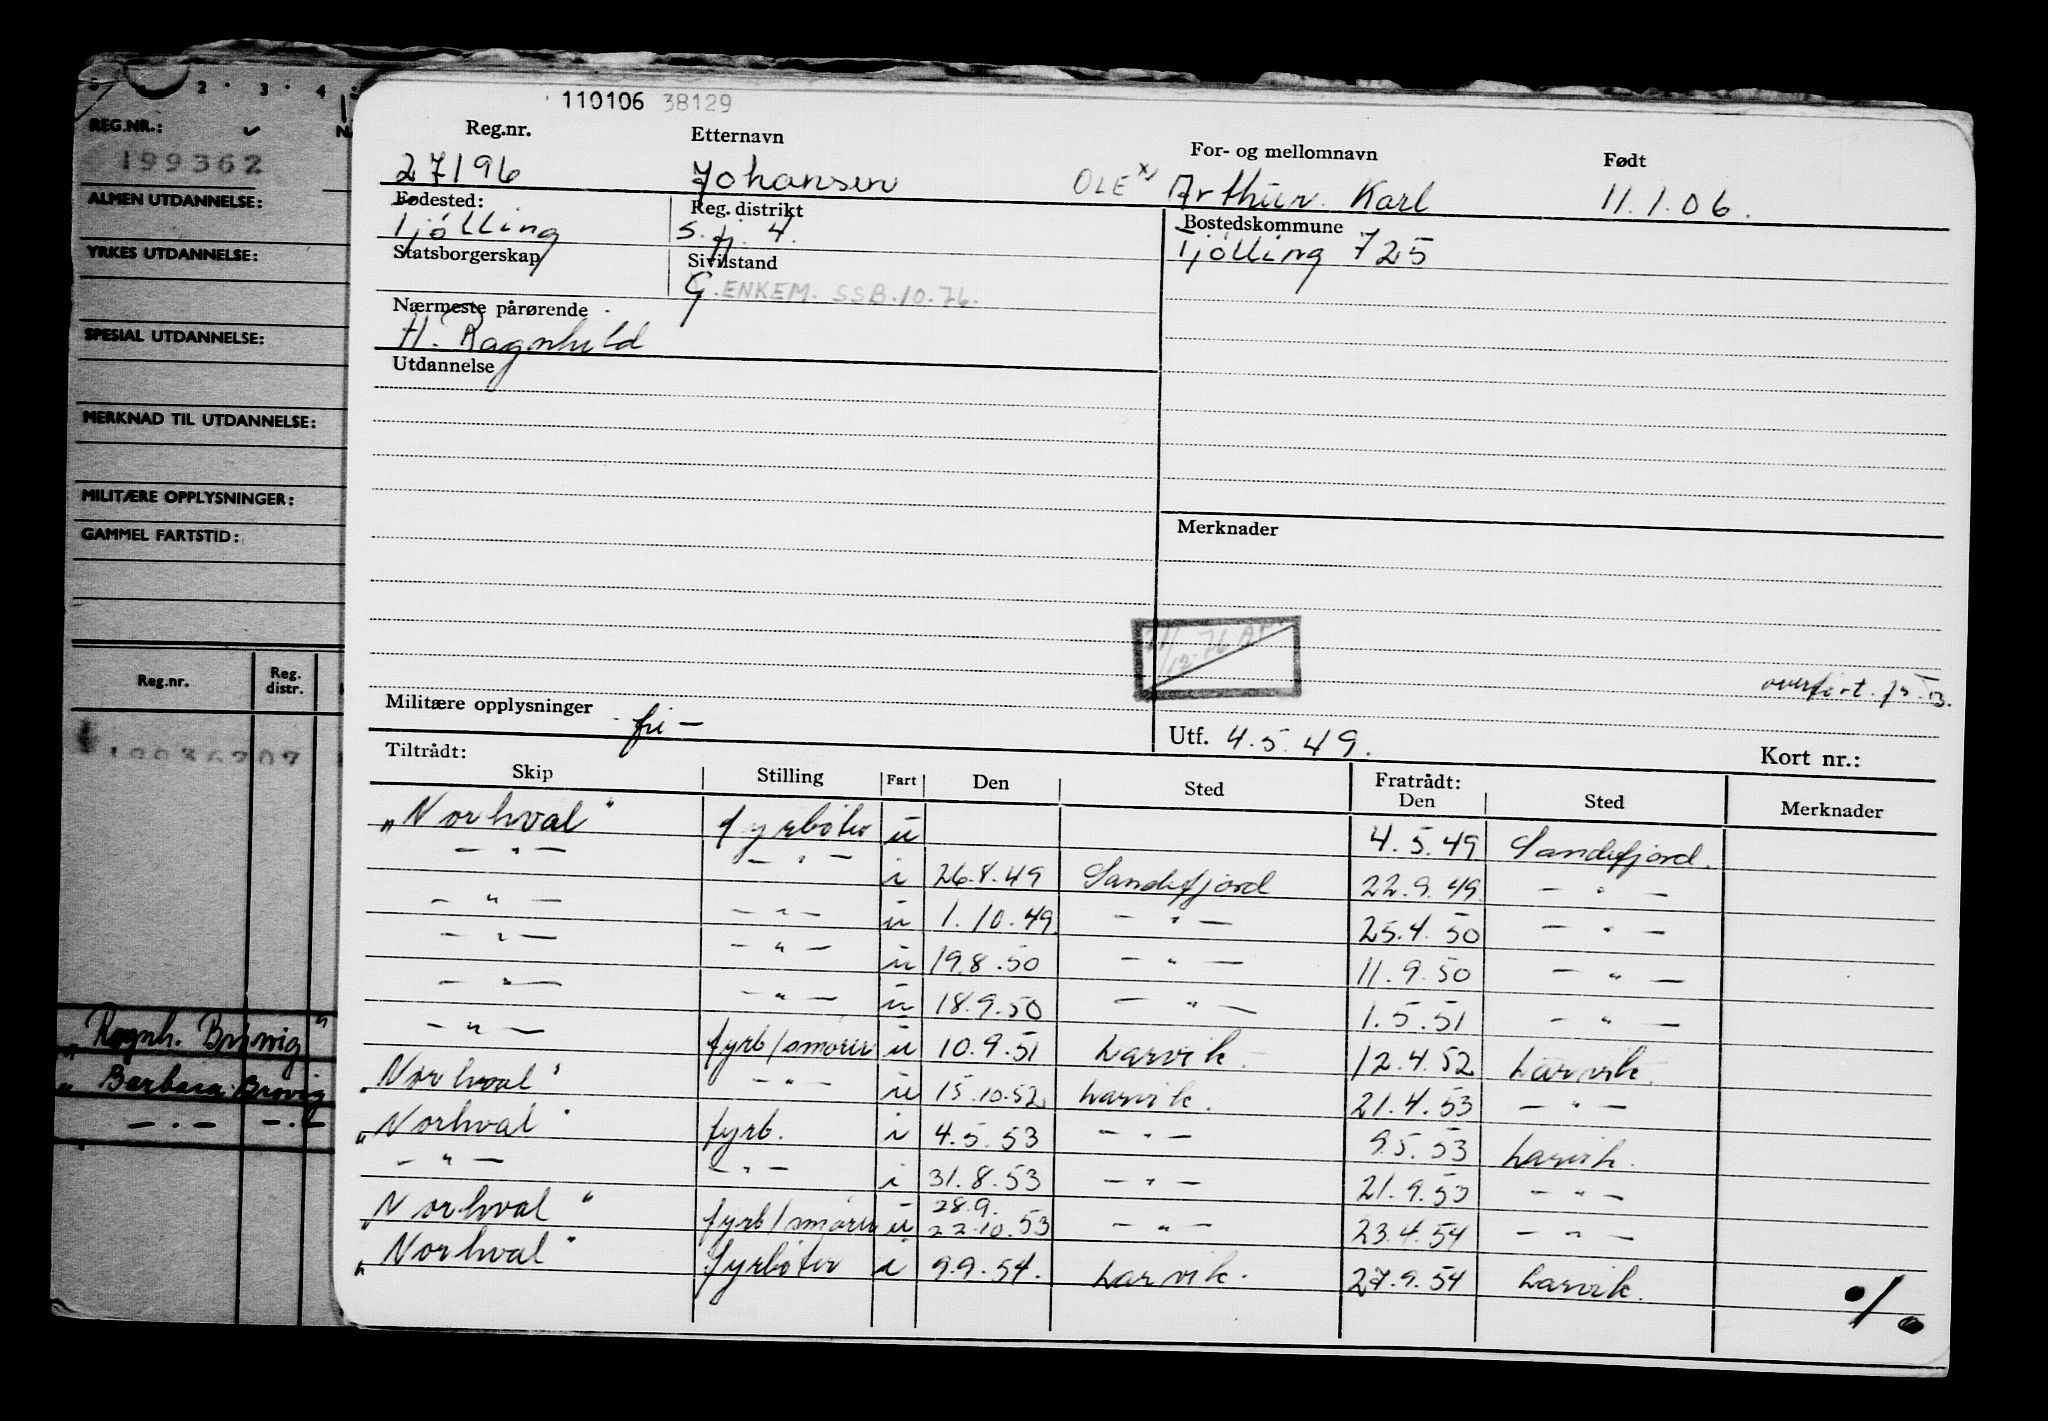 2 · 3 · 4
REG.NR.:
199362
ALMEN UTDANNELSE:
YRKES UTDANNELSE:
SPESIAL UTDANNELSE:
MERKNAD TIL UTDANNELSE:
MILITÆRE OPPLYSNINGER:
GAMMEL FARTSTID:
Reg.nr. Reg. distr.
"Ragnh. Brøvig"
" Barbara Brøvig
— . — — . —
110106 38129
Reg.nr. Etternavn For- og mellomnavn Født
27196 Johansen OLE x) Arthur Karl 11.1.06.
Fødested: Reg. distrikt Bostedskommune
Tjølling S.fj. 4. Tjølling 725
Statsborgerskap Sivilstand
G. ENKEM. SSB.10.76.
Nærmeste pårørende
H. Ragnhild
Utdannelse
Merknader
12.76
overført
Militære opplysninger fri — Utf. 4.5.49. Kort nr.:
Tiltrådt: Fratrådt:
Skip Stilling Fart Den Sted Den Sted Merknader
"Norhval" fyrbøter u 4.5.49 Sandefjord.
— " — — " — i 26.8.49 Sandefjord 22.9.49 — " —
— " — — " — u 1.10.49. — " — 25.4.50 — " —
— " — — " — u 19.8.50 — " — 11.9.50 — " —
— " — — " — u 18.9.50 — " — 1.5.51 — " —
— " — fyrb/smører u 10.9.51 Larvik. 12.4.52 Larvik.
"Norhval" — " — u 15.10.52 Larvik. 21.4.53 — " —
"Norhval" fyrb. i 4.5.53 — " — 9.5.53 Larvik.
— " — — " — i 31.8.53 — " — 21.9.53 — " —
28.9.
"Norhval" fyrb/smører u 22.10.53 — " — 23.4.54 — " —
"Norhval" fyrbøter i 9.9.54. Larvik. 27.9.54 Larvik.
./.